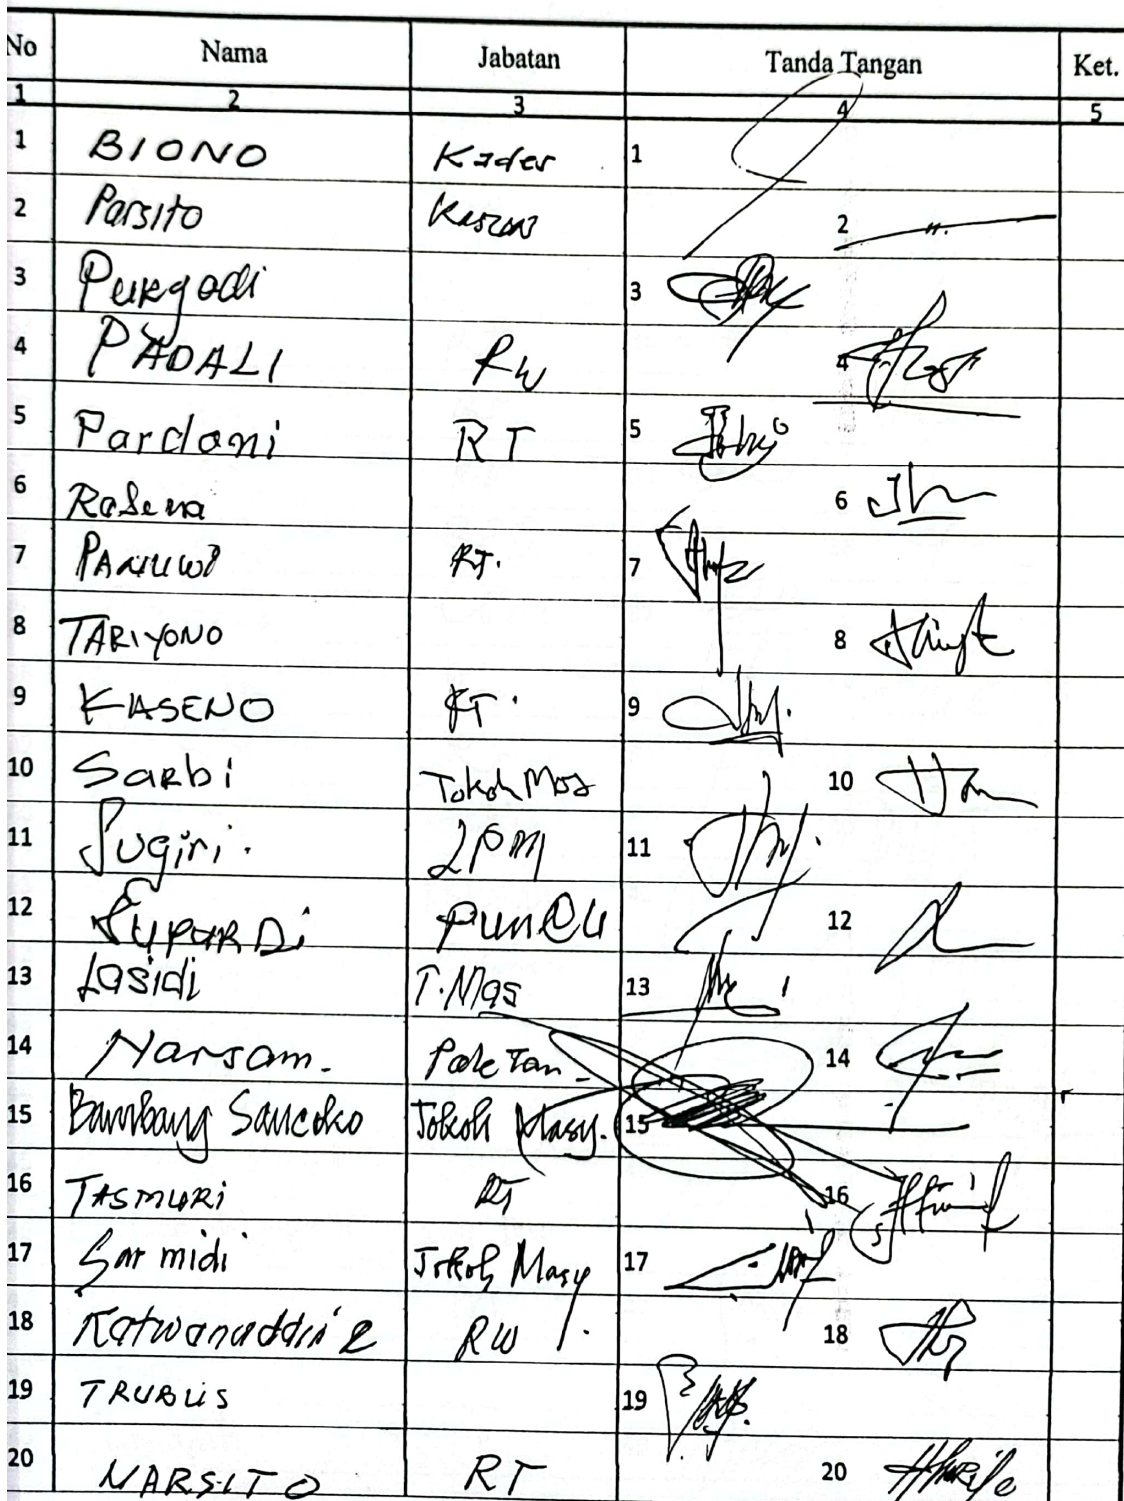 No Nama Jabatan Tanda Tangan Ket.
1 2 3 4 5
1 BIONO Kader 1
2 Parsito 2
3 Purgadi 3
4 PADALI RW 4
5 Pardoni RT 5
6 6
7 PANUWI RT. 7
8 TARIYONO 8
9 KASENO RT. 9
10 Sarbi Tokoh Mas 10
11 Sugiri. LPM 11
12 SUPARDi 12
13 Lasidi T.Mas 13
14 Narsam. 14
15 Bambang Sancoko Tokoh Masy. 15
16 TASMURi RT 16
17 Sarmidi Tokoh Masy 17
18 RW 18
19 TRUBUS 19
20 NARSITO RT 20